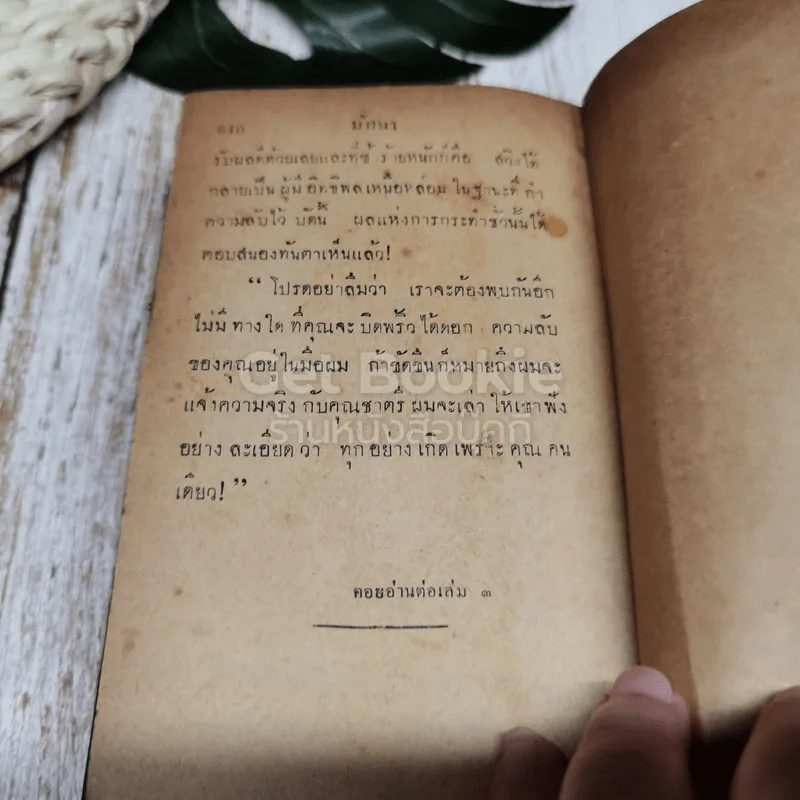 มัทนา
รับผลดีด้วยเลยและที่ซ้ำร้ายหนักก็คือ สวิงได้
กลายเป็น ผู้มีอิทธิพลเหนือหล่อน ในฐานะที่ กำ
ความลับไว้ บัดนี้ ผลแห่งการกระทำชั่วนั้นได้
ตอบสนองทันตาเห็นแล้ว!
“ โปรดอย่าลืมว่า เราจะต้องพบกันอีก
ไม่มี ทางใด ที่คุณจะ บิดพริ้ว ได้ดอก ความลับ
ของคุณอยู่ในมือผม ถ้าขัดขืนก็หมายถึงผมจะ
แจ้งความจริง กับคุณชาตรี ผมจะเล่า ให้เขาฟัง
อย่าง ละเอียด ว่า ทุก อย่าง เกิด เพราะ คุณ คน
เดียว! ”
Get Bookie
ร้านหนังสือนัดกุ๊ก
คอยอ่านต่อเล่ม ๓